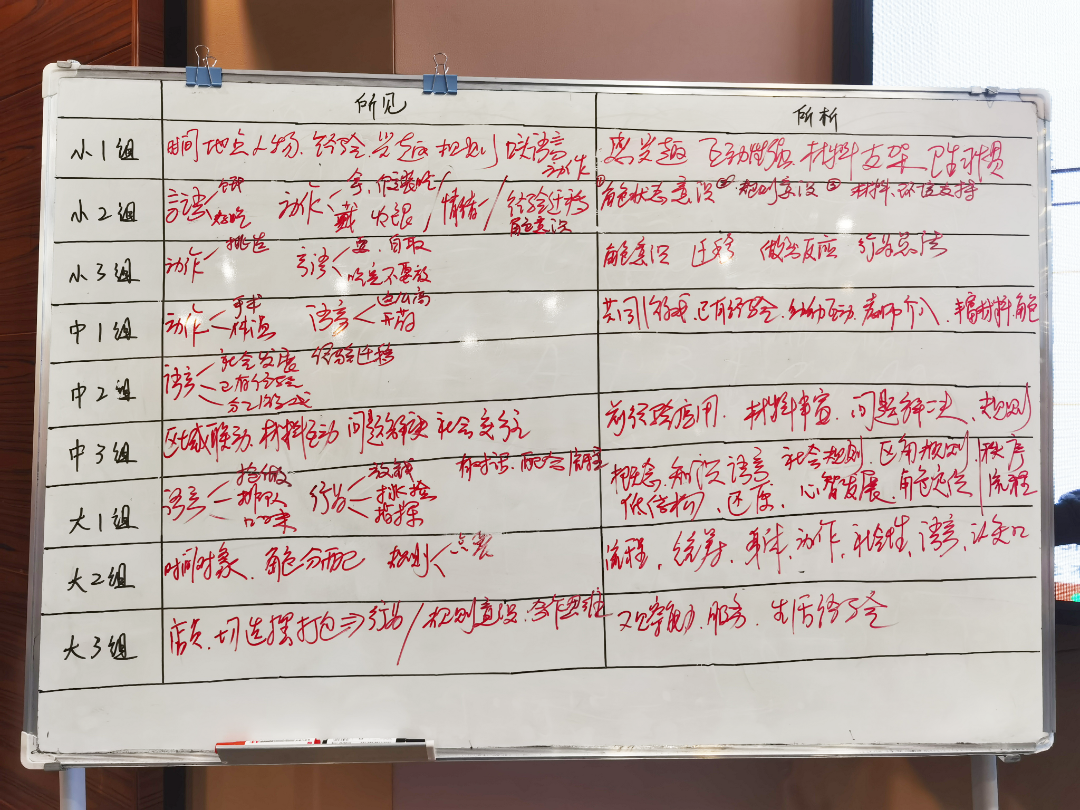 所见 所析
小1组 时间 地点 人物、经验、兴趣 规则 语言 动作 兴趣 互动性强 材料支架 卫生习惯
小2组 语言 好吃 动作 拿 戴 情绪 经验迁移 角色意识 ①角色状态意识 ②规则意识 ③材料、环境支持
小3组 动作 挑选 言语 自取 吃完不要放 角色意识 迁移 做出反应
中1组 动作 手术 体温 语言 这么高 开药 共同游戏、已有经验、互动、教师介入、丰富材料、角色
中2组 语言 社会发展 经验迁移 已有经验 分工游戏
中3组 区域联动、材料互动 问题解决 社会交往 前经验应用、材料丰富、问题解决、规则
大1组 语言 抢做 排队 行为 放钱 挑捡 指挥 有意识、配合 概念、知识 语言 社会规则、区角规则、秩序 低结构、还原、心智发展、角色定位 流程
大2组 时间对象、角色分配 规则 点餐 流程、统筹、身体、动作、社会性、语言、认知
大3组 店员、切选摆打包⇒行为/规则意识、合作思维 观察能力、服务、生活经验